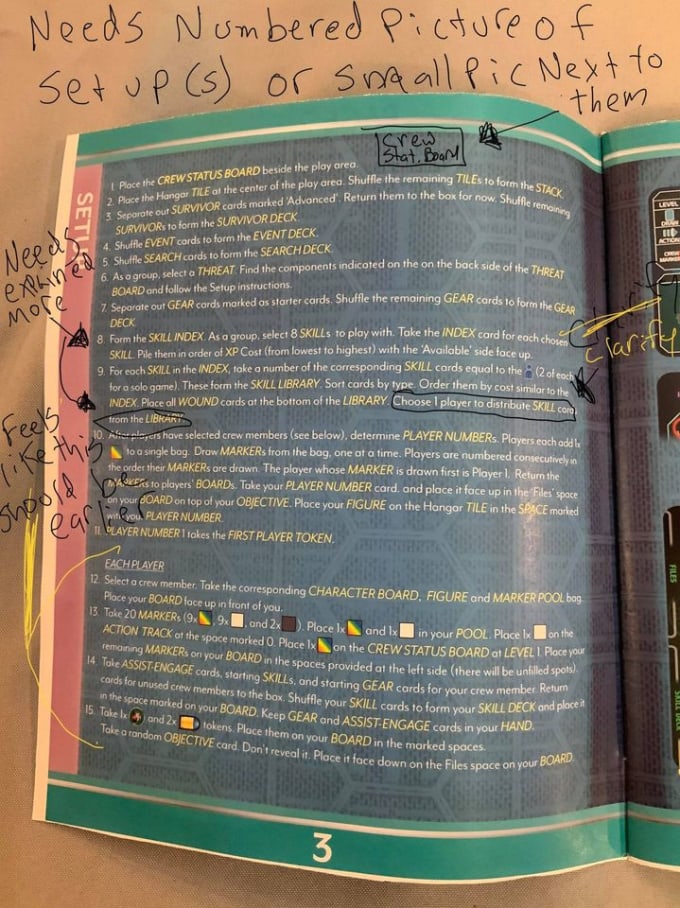 Needs Numbered Picture of
Set up (s) or small Pic Next to
them
Crew
Stat. Board
SETUP
1. Place the CREW STATUS BOARD beside the play area.
2. Place the Hangar TILE at the center of the play area. Shuffle the remaining TILEs to form the STACK.
3. Separate out SURVIVOR cards marked 'Advanced'. Return them to the box for now. Shuffle remaining
SURVIVORs to form the SURVIVOR DECK.
4. Shuffle EVENT cards to form the EVENT DECK.
5. Shuffle SEARCH cards to form the SEARCH DECK.
6. As a group, select a THREAT. Find the components indicated on the on the back side of the THREAT
BOARD and follow the Setup instructions.
7. Separate out GEAR cards marked as starter cards. Shuffle the remaining GEAR cards to form the GEAR
DECK.
8. Form the SKILL INDEX. As a group, select 8 SKILLs to play with. Take the INDEX card for each chosen
SKILL. Pile them in order of XP Cost (from lowest to highest) with the 'Available' side face up.
9. For each SKILL in the INDEX, take a number of the corresponding SKILL cards equal to the (2 of each
for a solo game). These form the SKILL LIBRARY. Sort cards by type. Order them by cost similar to the
INDEX. Place all WOUND cards at the bottom of the LIBRARY. Choose 1 player to distribute SKILL cards
from the LIBRARY.
10. After players have selected crew members (see below), determine PLAYER NUMBERs. Players each add 1x
to a single bag. Draw MARKERs from the bag, one at a time. Players are numbered consecutively in
the order their MARKERs are drawn. The player whose MARKER is drawn first is Player 1. Return the
MARKERs to players' BOARDs. Take your PLAYER NUMBER card, and place it face up in the 'Files' space
on your BOARD on top of your OBJECTIVE. Place your FIGURE on the Hangar TILE in the SPACE marked
with your PLAYER NUMBER.
11. PLAYER NUMBER 1 takes the FIRST PLAYER TOKEN.
EACH PLAYER
12. Select a crew member. Take the corresponding CHARACTER BOARD, FIGURE and MARKER POOL bag.
Place your BOARD face up in front of you.
13. Take 20 MARKERs (9x , 9x , and 2x ). Place 1x and 1x in your POOL. Place 1x on the
ACTION TRACK at the space marked 0. Place 1x on the CREW STATUS BOARD at LEVEL 1. Place your
remaining MARKERs on your BOARD in the spaces provided at the left side (there will be unfilled spots).
14. Take ASSIST-ENGAGE cards, starting SKILLs, and starting GEAR cards for your crew member. Return
cards for unused crew members to the box. Shuffle your SKILL cards to form your SKILL DECK and place it
in the space marked on your BOARD. Keep GEAR and ASSIST-ENGAGE cards in your HAND.
15. Take 1x and 2x tokens. Place them on your BOARD in the marked spaces.
Take a random OBJECTIVE card. Don't reveal it. Place it face down on the Files space on your BOARD.
3
Needs
explained
more
Feels
like this
should be
earlier
Clarify
Clarify
LEVEL
DRAW
ACTION
CREW
MARKER
FILES
SKILL DECK